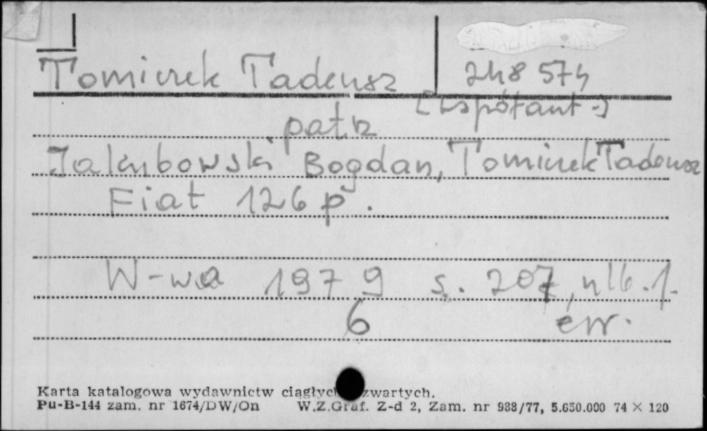 Tomiczek Tadeusz 248 574
[współaut.]
patrz
Jakubowski Bogdan, Tomiczek Tadeusz
Fiat 126p.
W-wa 1979 s. 207, nlb. 1.
6 err.
Karta katalogowa wydawnictw ciągłych zwartych.
Pu-B-144 zam. nr 1674/DW/On W.Z.Graf. Z-d 2, Zam. nr 988/77, 5.650.000 74 × 120